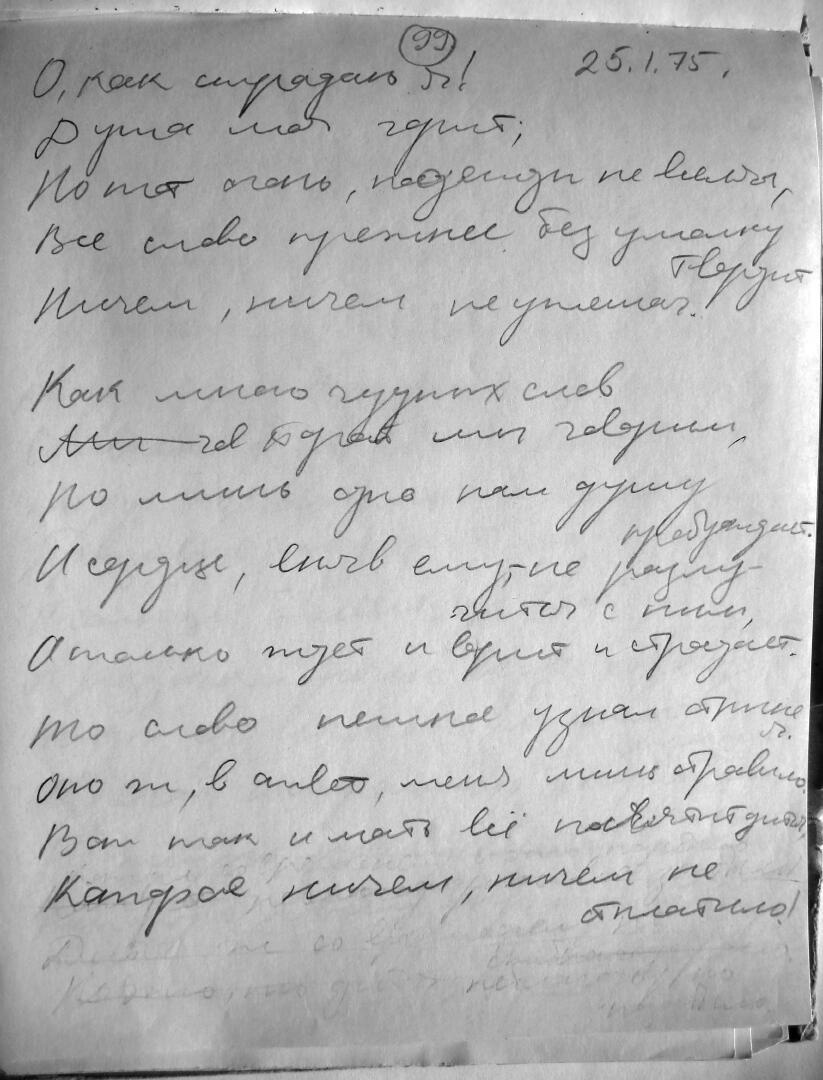 99
О, как страдаю я! 25.1.75.
Душа моя горит;
Но тот огонь, надежды не внемля,
Все слово прежнее без умолку
твердит
Ничем, ничем не утешая.
Как много чудных слов
порой мы говорим,
Но лишь одно нам душу
пробуждает.
И сердце, вняв ему, – не разлу-
чится с ним,
А только ждет и верит и страдает.
То слово нежное узнал отныне
я.
Оно ж, в ответ, меня лишь отравило.
Вот так и мать всё посвятит дитя,
Которое ничем, ничем не
отплатило!